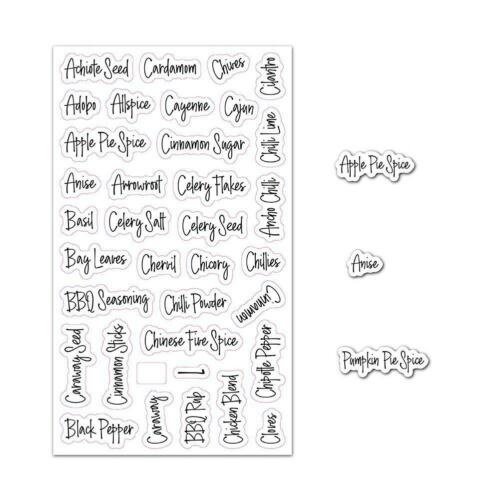 Achiote Seed
Cardamom
Chives
Cilantro
Adobo
Allspice
Cayenne
Cajun
Chili Lime
Apple Pie Spice
Cinnamon Sugar
Anise
Arrowroot
Celery Flakes
Ancho Chilli
Basil
Celery Salt
Celery Seed
Bay Leaves
Chervil
Chicory
Chillies
BBQ Seasoning
Chilli Powder
Cinnamon
Caraway Seed
Cinnamon Sticks
Chinese Five Spice
Chipotle Pepper
1
Black Pepper
Caraway
BBQ Rub
Chicken Blend
Cloves
Apple Pie Spice
Anise
Pumpkin Pie Spice